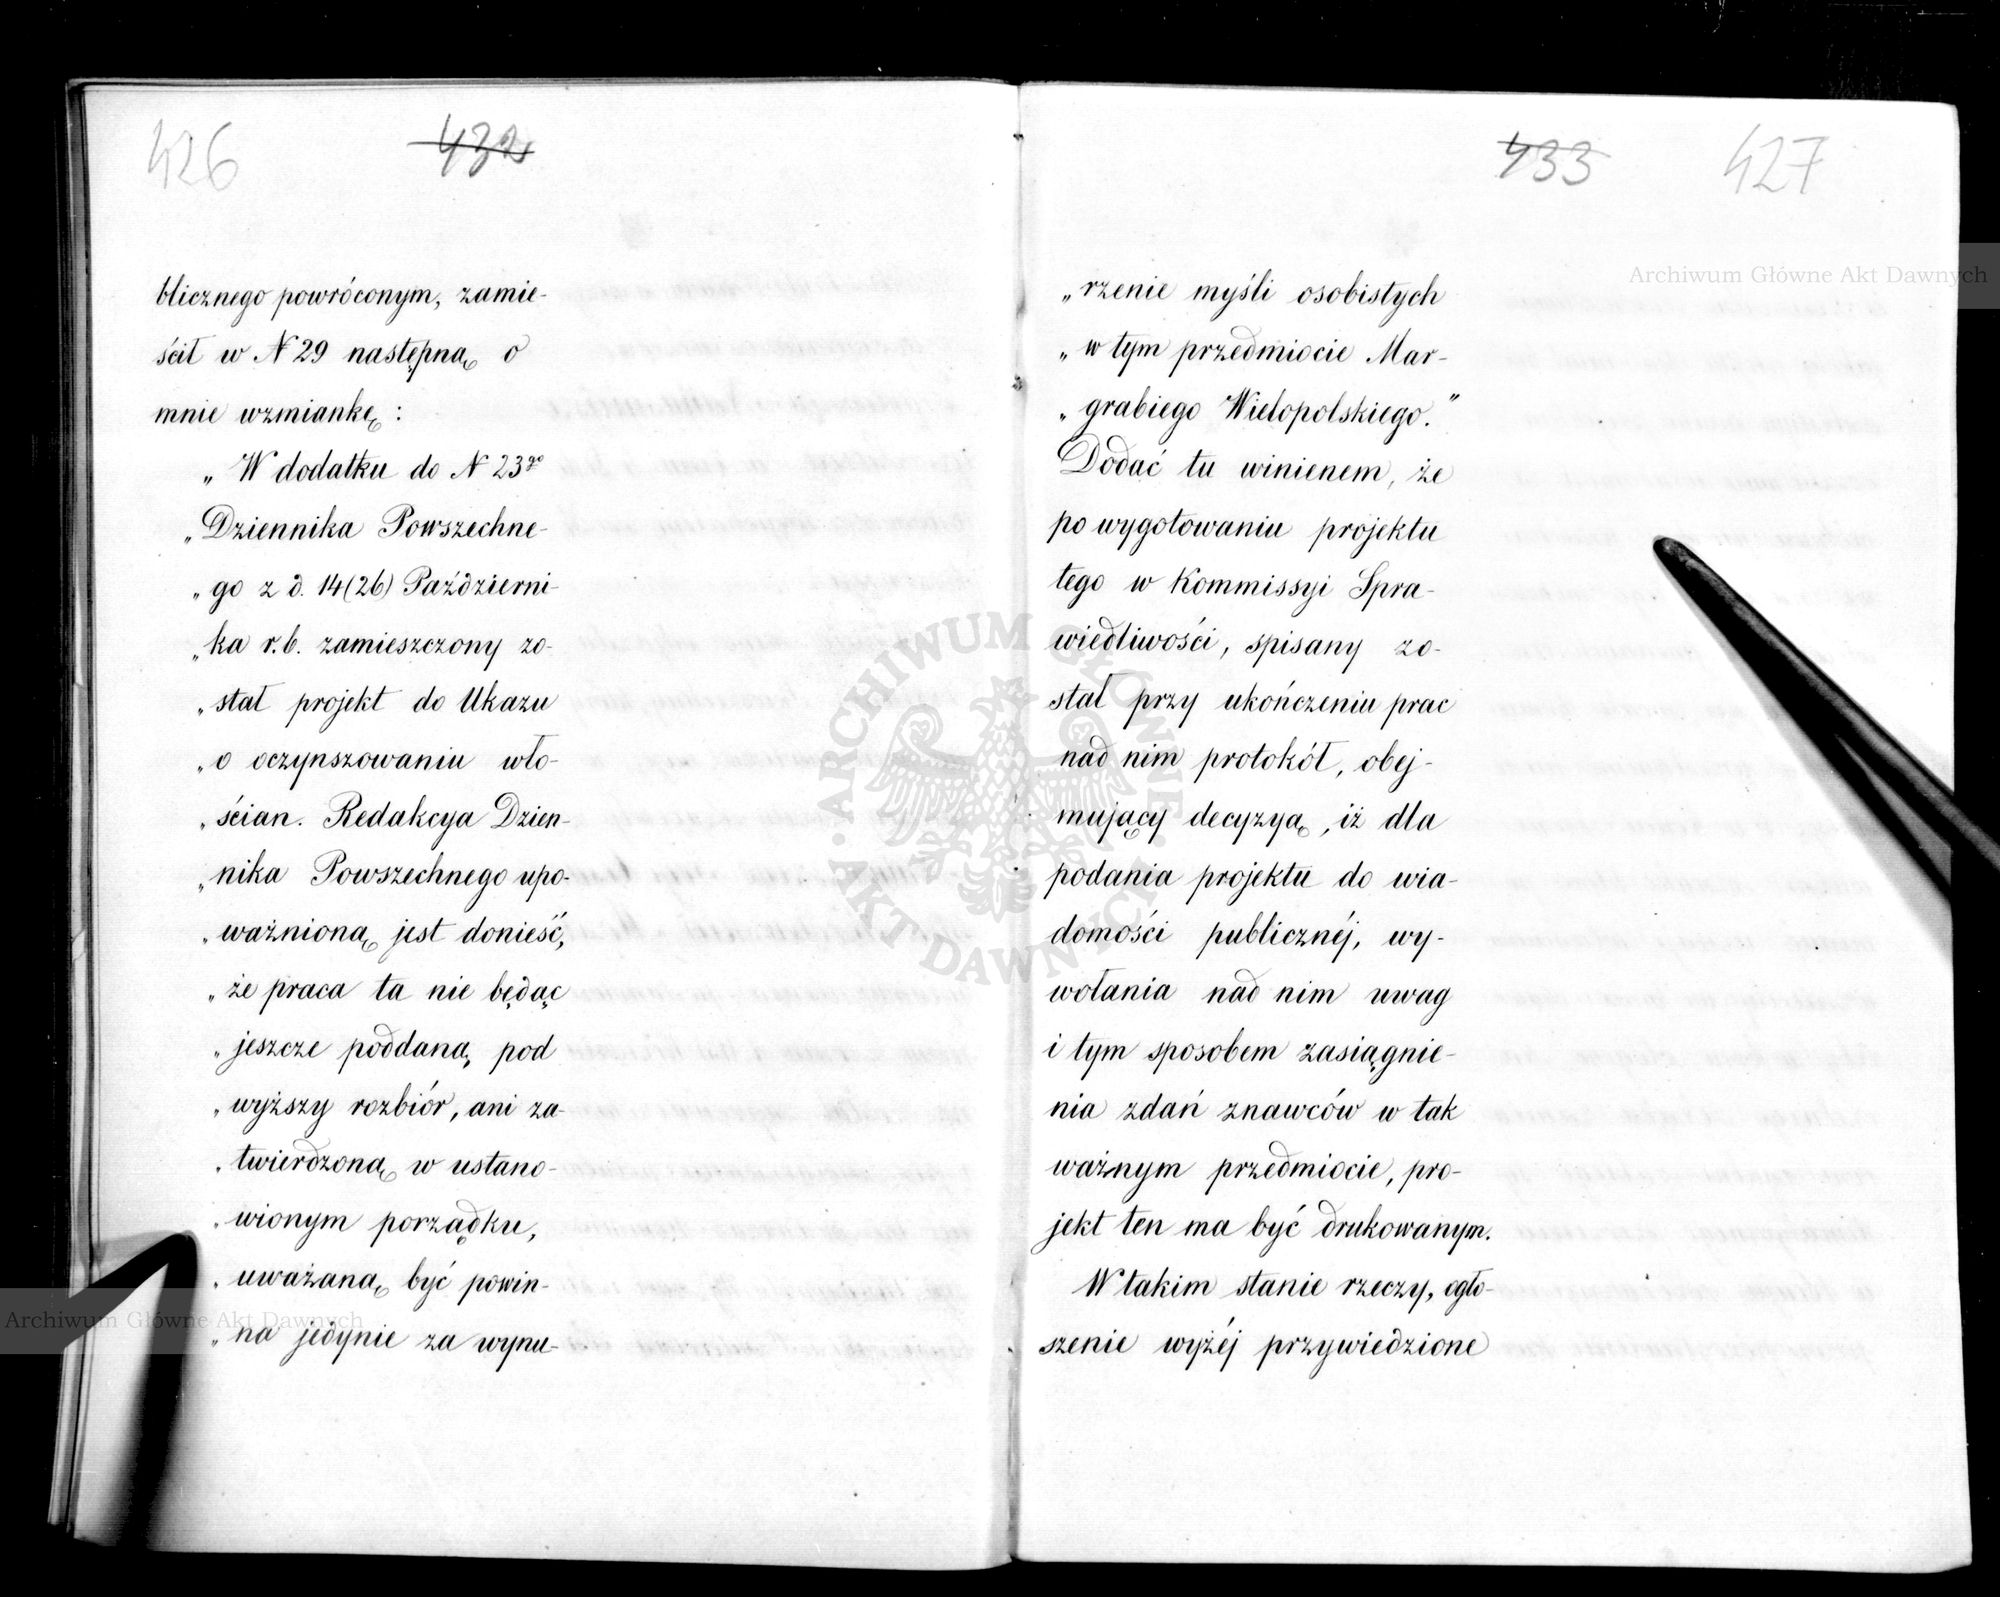 426
432
blicznego powróconym, zamie-
ścił w N 29 następną o
mnie wzmiankę:
„W dodatku do N 23go
„Dziennika Powszechne-
„go z d. 14(26) Październi-
„ka r.b. zamieszczony zo-
„stał projekt do Ukazu
„o oczynszowaniu wło-
„ścian. Redakcya Dzien-
„nika Powszechnego upo-
„ważnioną jest donieść,
„że praca ta nie będąc
„jeszcze poddaną pod
„wyższy rozbiór, ani za-
„twierdzoną w ustano-
„wionym porządku,
„uważaną być powin-
„na jedynie za wynu-
433
427
„rzenie myśli osobistych
„w tym przedmiocie Mar-
„grabiego Wielopolskiego."
Dodać tu winienem, że
po wygotowaniu projektu
tego w Kommissyi Spra-
wiedliwości, spisany zo-
stał przy ukończeniu prac
nad nim protokół, obej-
mujący decyzyą, iż dla
podania projektu do wia-
domości publicznéj, wy-
wołania nad nim uwag
i tym sposobem zasiągnie-
nia zdań znawców w tak
ważnym przedmiocie, pro-
jekt ten ma być drukowanym.
W takim stanie rzeczy, ogło-
szenie wyżéj przywiedzione
Archiwum Główne Akt Dawnych
ARCHIWUM GŁÓWNE AKT DAWNYCH
Archiwum Główne Akt Dawnych